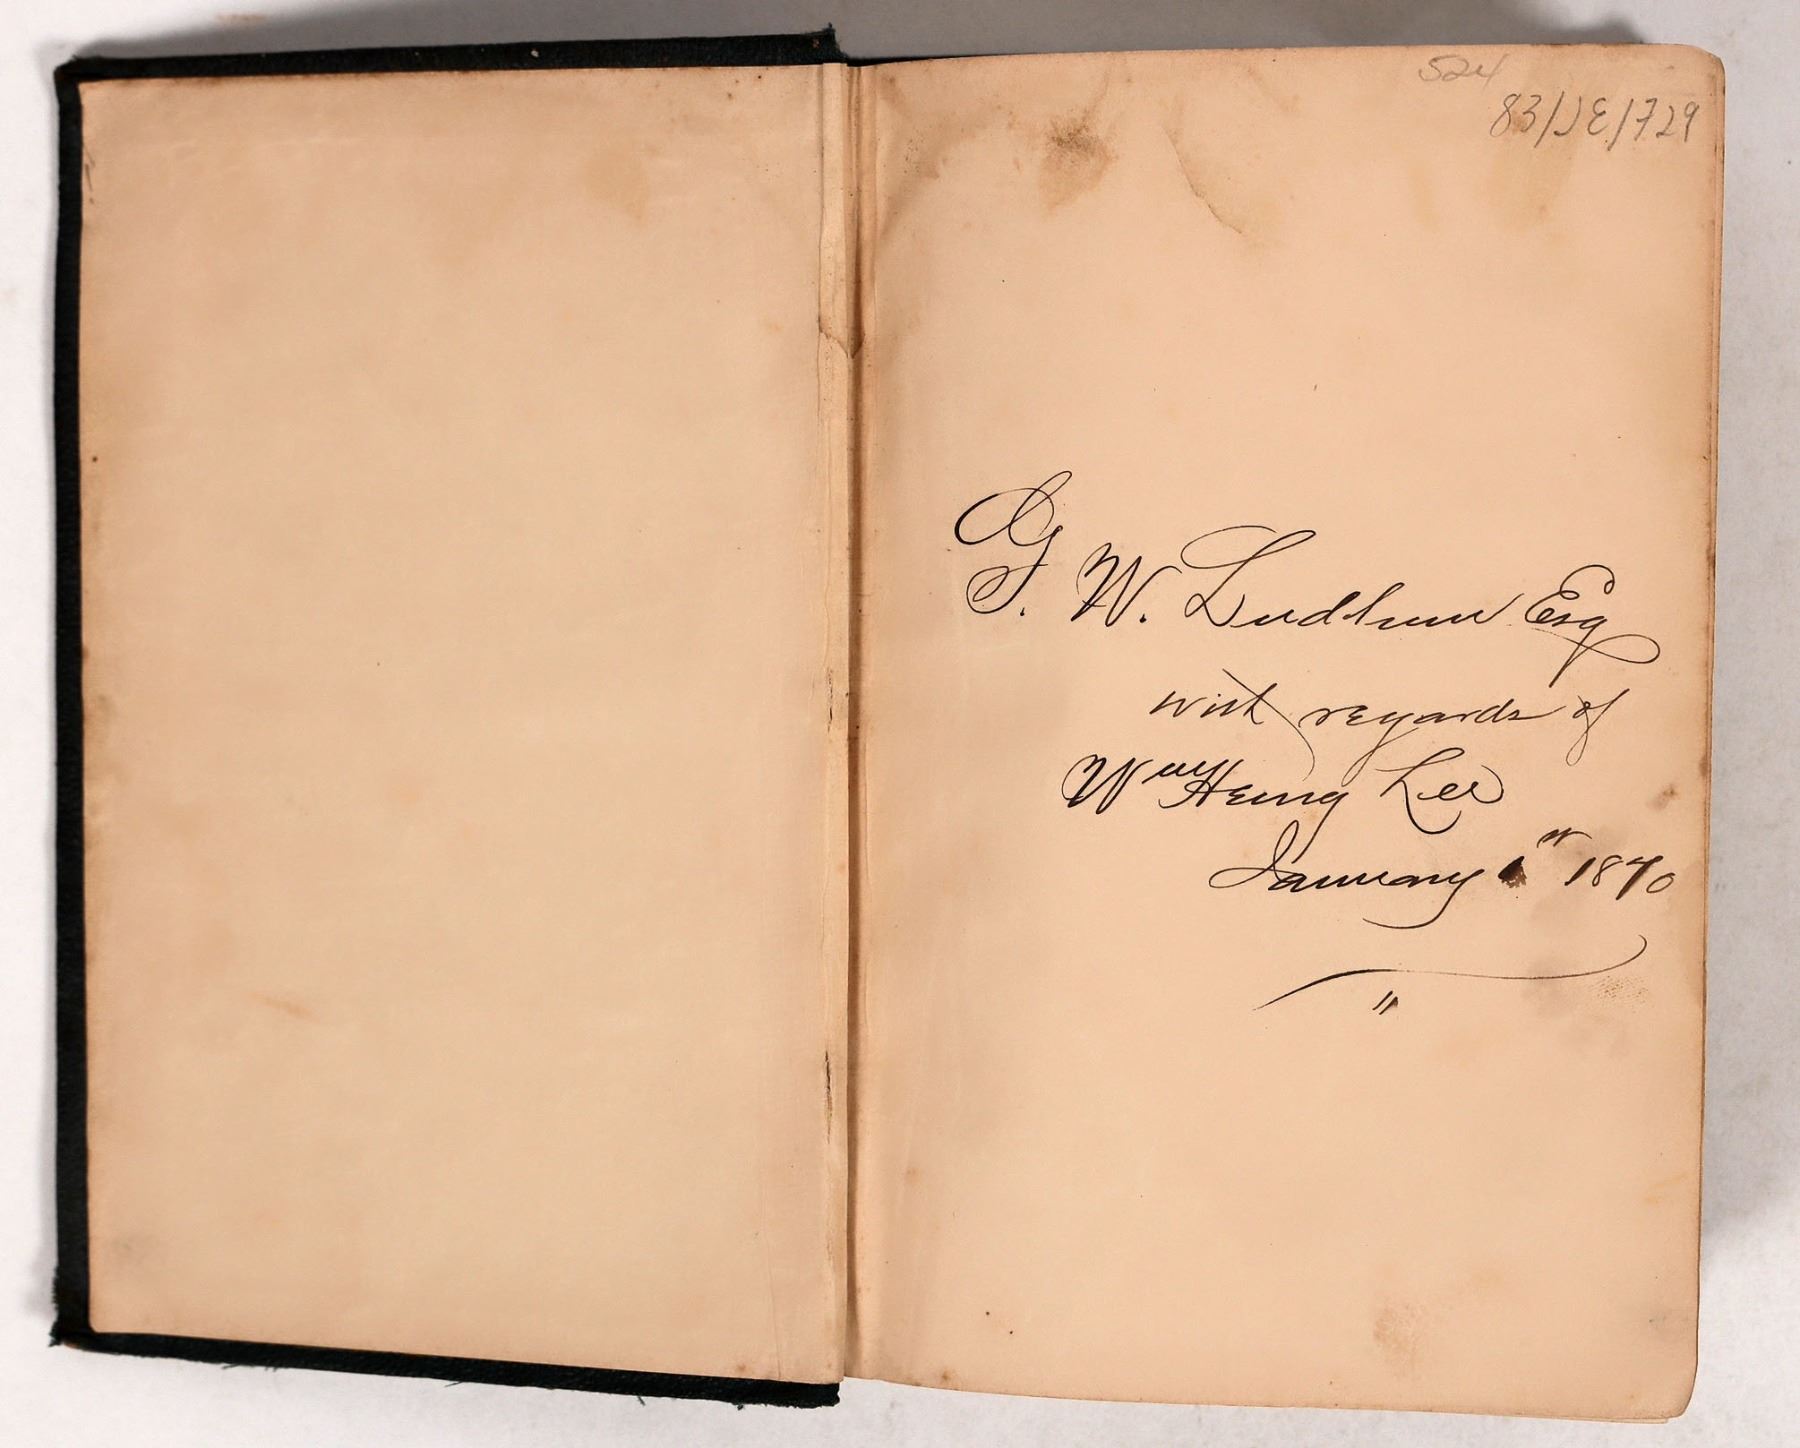 524
83/JE/729
G. W. Ludlum Esq
with regards of
Wm Henry Lee
January 1st 1870